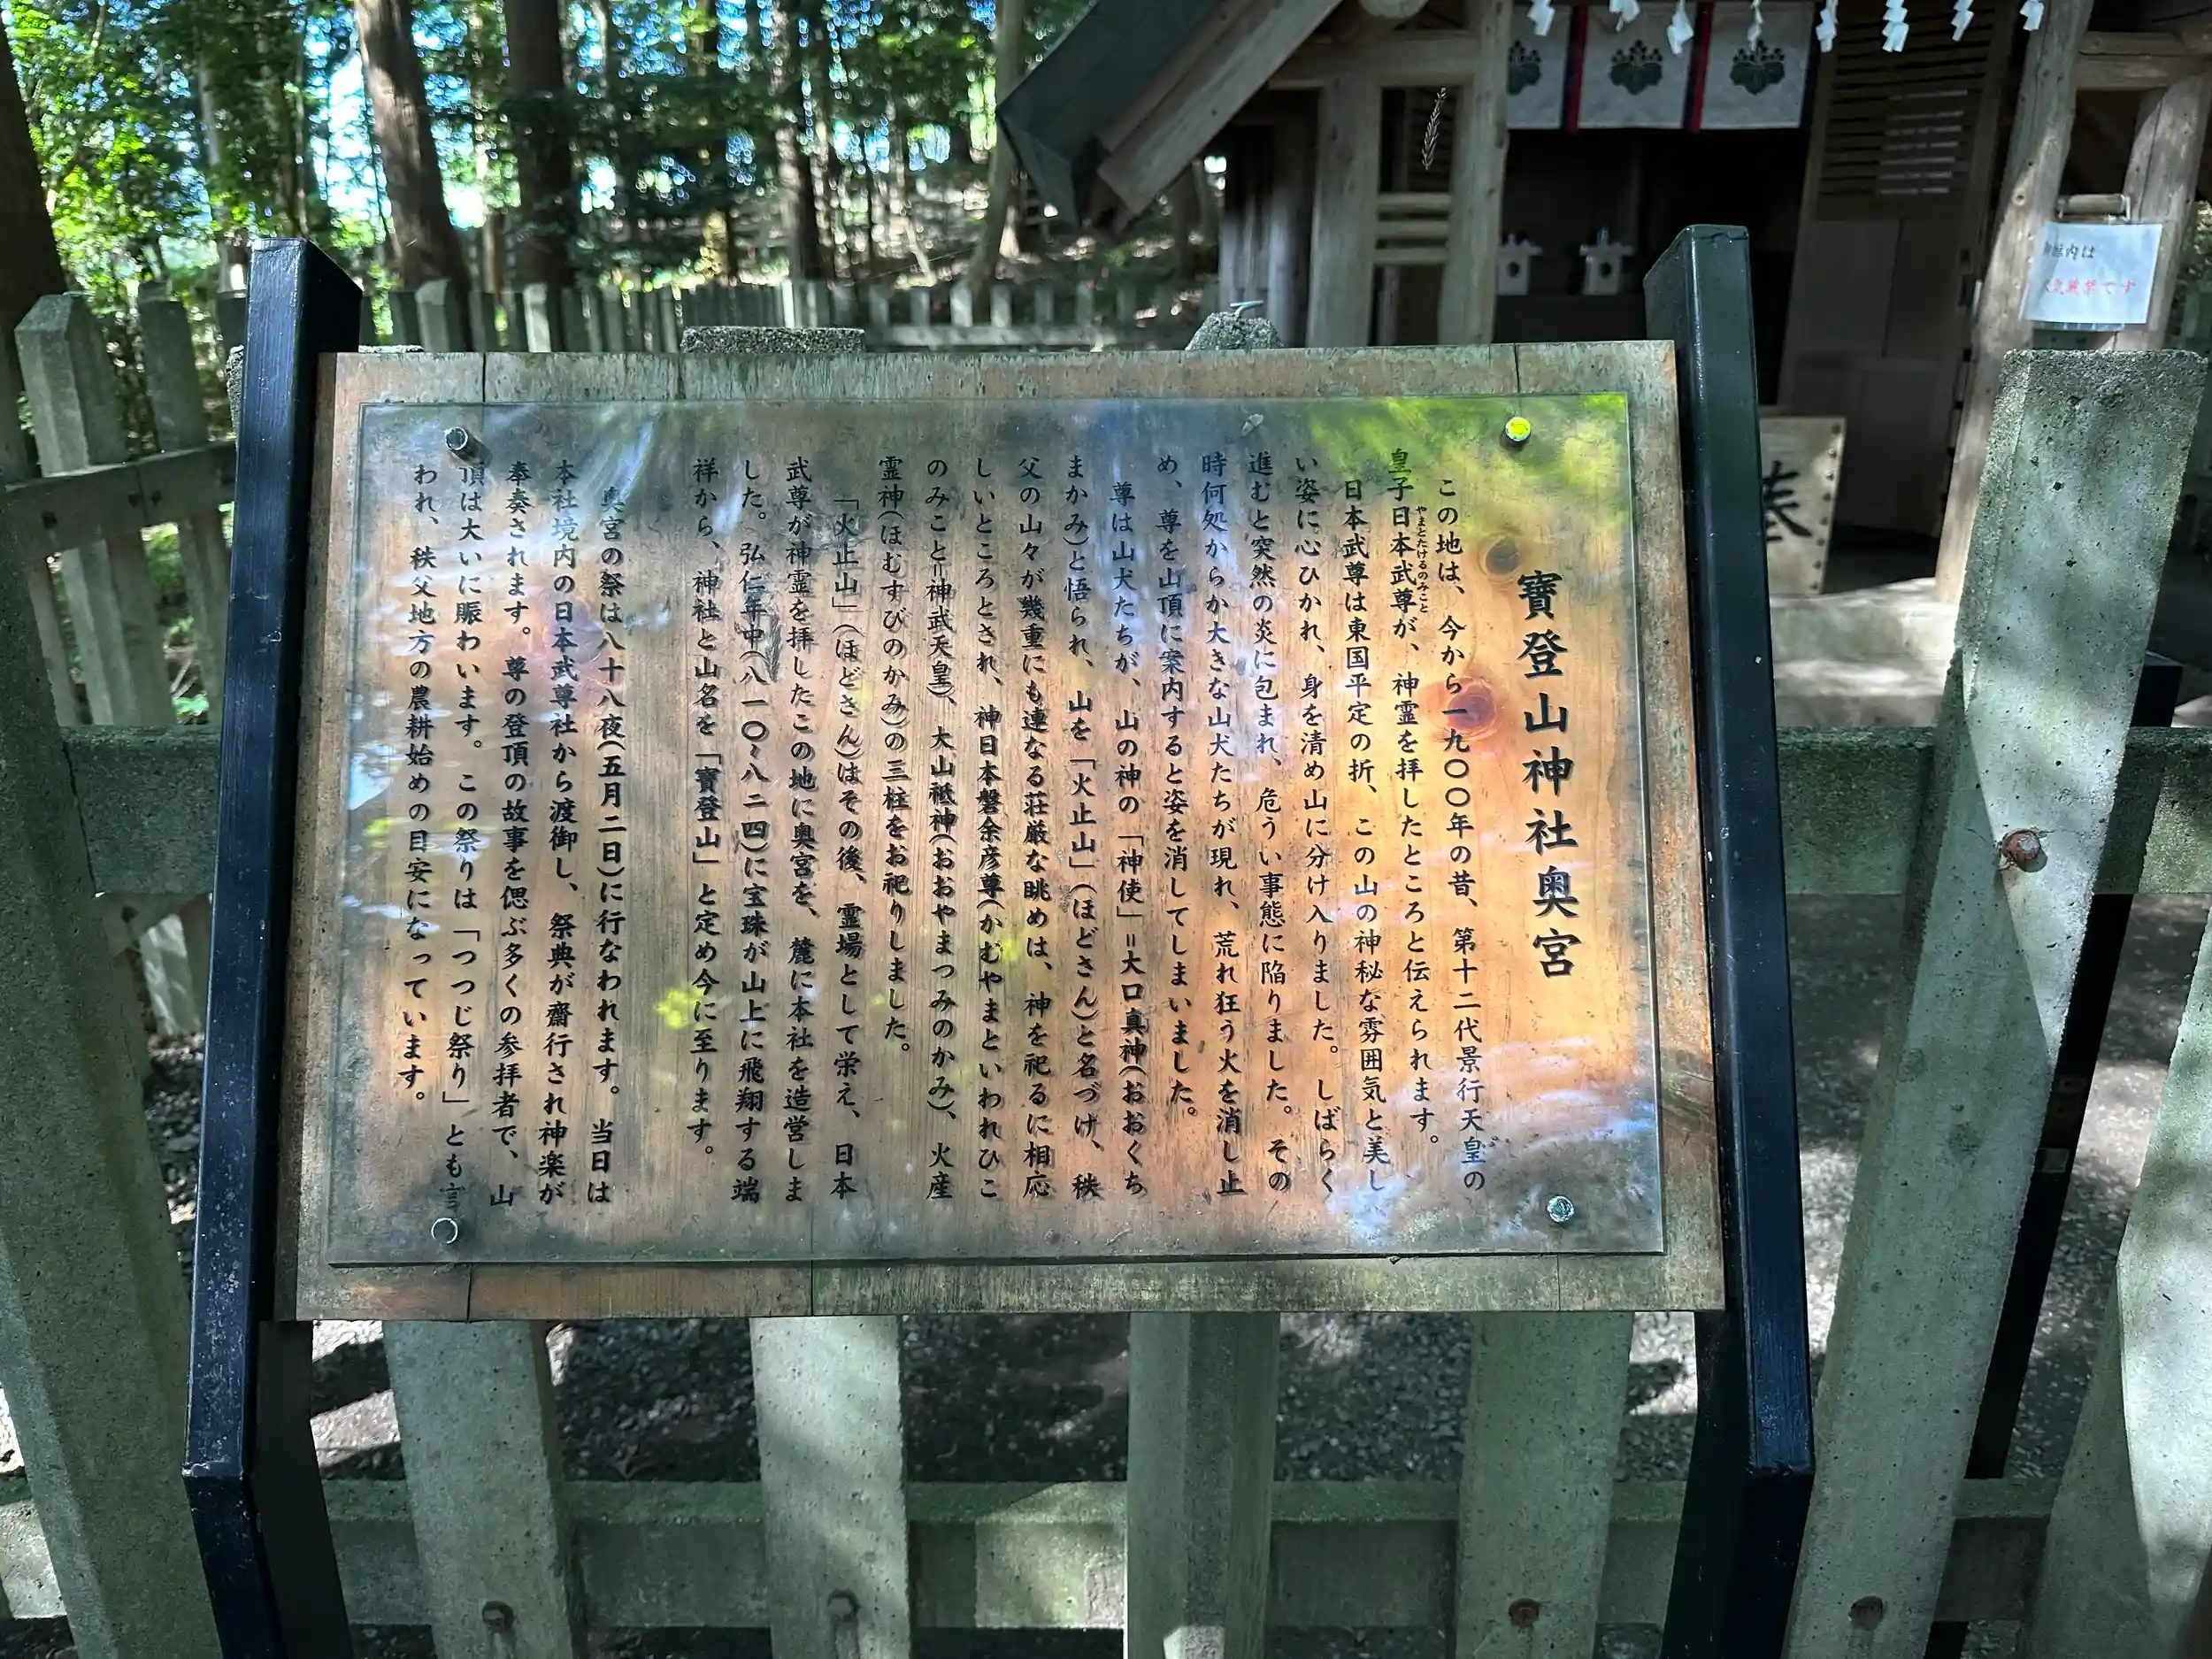 寶登山神社奥宮
この地は、今から一九〇〇年の昔、第十二代景行天皇の
皇子日本武尊が、神霊を拝したところと伝えられます。
やまとたけるのみこと
日本武尊は東国平定の折、この山の神秘な雰囲気と美し
い姿に心ひかれ、身を清め山に分け入りました。しばらく
進むと突然の炎に包まれ、危うい事態に陥りました。その
時何処からか大きな山犬たちが現れ、荒れ狂う火を消し止
め、尊を山頂に案内すると姿を消してしまいました。
尊は山犬たちが、山の神の「神使」=大口真神(おおくち
まかみ)と悟られ、山を「火止山」(ほどさん)と名づけ、秩
父の山々が幾重にも連なる荘厳な眺めは、神を祀るに相応
しいところとされ、神日本磐余彦尊(かむやまといわれひこ
のみこと=神武天皇)、大山祗神(おおやまつみのかみ)、火産
霊神(ほむすびのかみ)の三柱をお祀りしました。
「火止山」(ほどさん)はその後、霊場として栄え、日本
武尊が神霊を拝したこの地に奥宮を、麓に本社を造営しま
した。弘仁年中(八一〇~八二四)に宝珠が山上に飛翔する端
祥から、神社と山名を「寶登山」と定め今に至ります。
奥宮の祭は八十八夜(五月二日)に行なわれます。当日は
本社境内の日本武尊社から渡御し、祭典が齋行され神楽が
奉奏されます。尊の登頂の故事を偲ぶ多くの参拝者で、山
頂は大いに賑わいます。この祭りは「つつじ祭り」とも言
われ、秩父地方の農耕始めの目安になっています。
内は
です